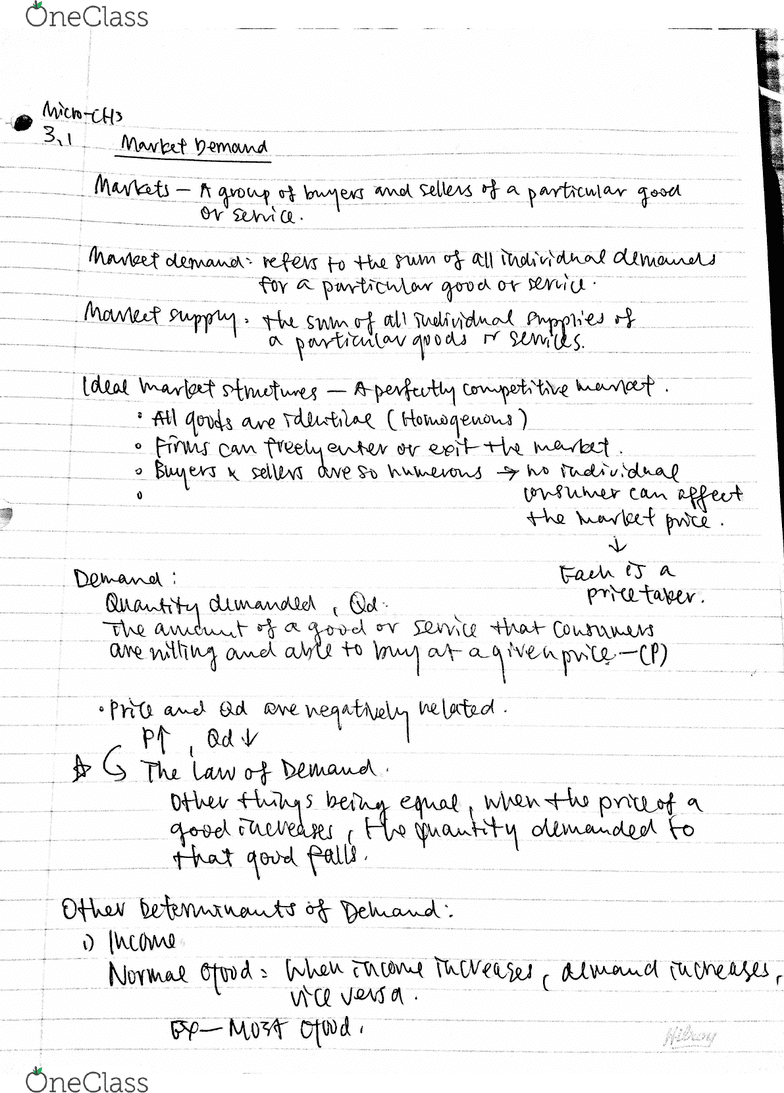 OneClass
Micro-CH3
3.1 Market Demand
Markets – A group of buyers and sellers of a particular good
or service.
Market demand: refers to the sum of all individual demands
for a particular good or service.
Market supply: the sum of all individual supplies of
a particular goods or services.
Ideal market structures – A perfectly competitive market.
• All goods are identical (Homogenous)
• Firms can freely enter or exit the market.
• Buyers & sellers are so numerous → no individual
consumer can affect
the market price.
↓
Each is a
price taker.
Demand:
Quantity demanded, Qd:
The amount of a good or service that consumers
are willing and able to buy at a given price – (P)
• Price and Qd are negatively related.
P↑, Qd↓
The Law of Demand.
Other things being equal, when the price of a
good increases, the quantity demanded to
that good falls.
Other Determinants of Demand:
1) Income
Normal Good: When income increases, demand increases,
vice versa.
Ex – Most Good.
OneClass